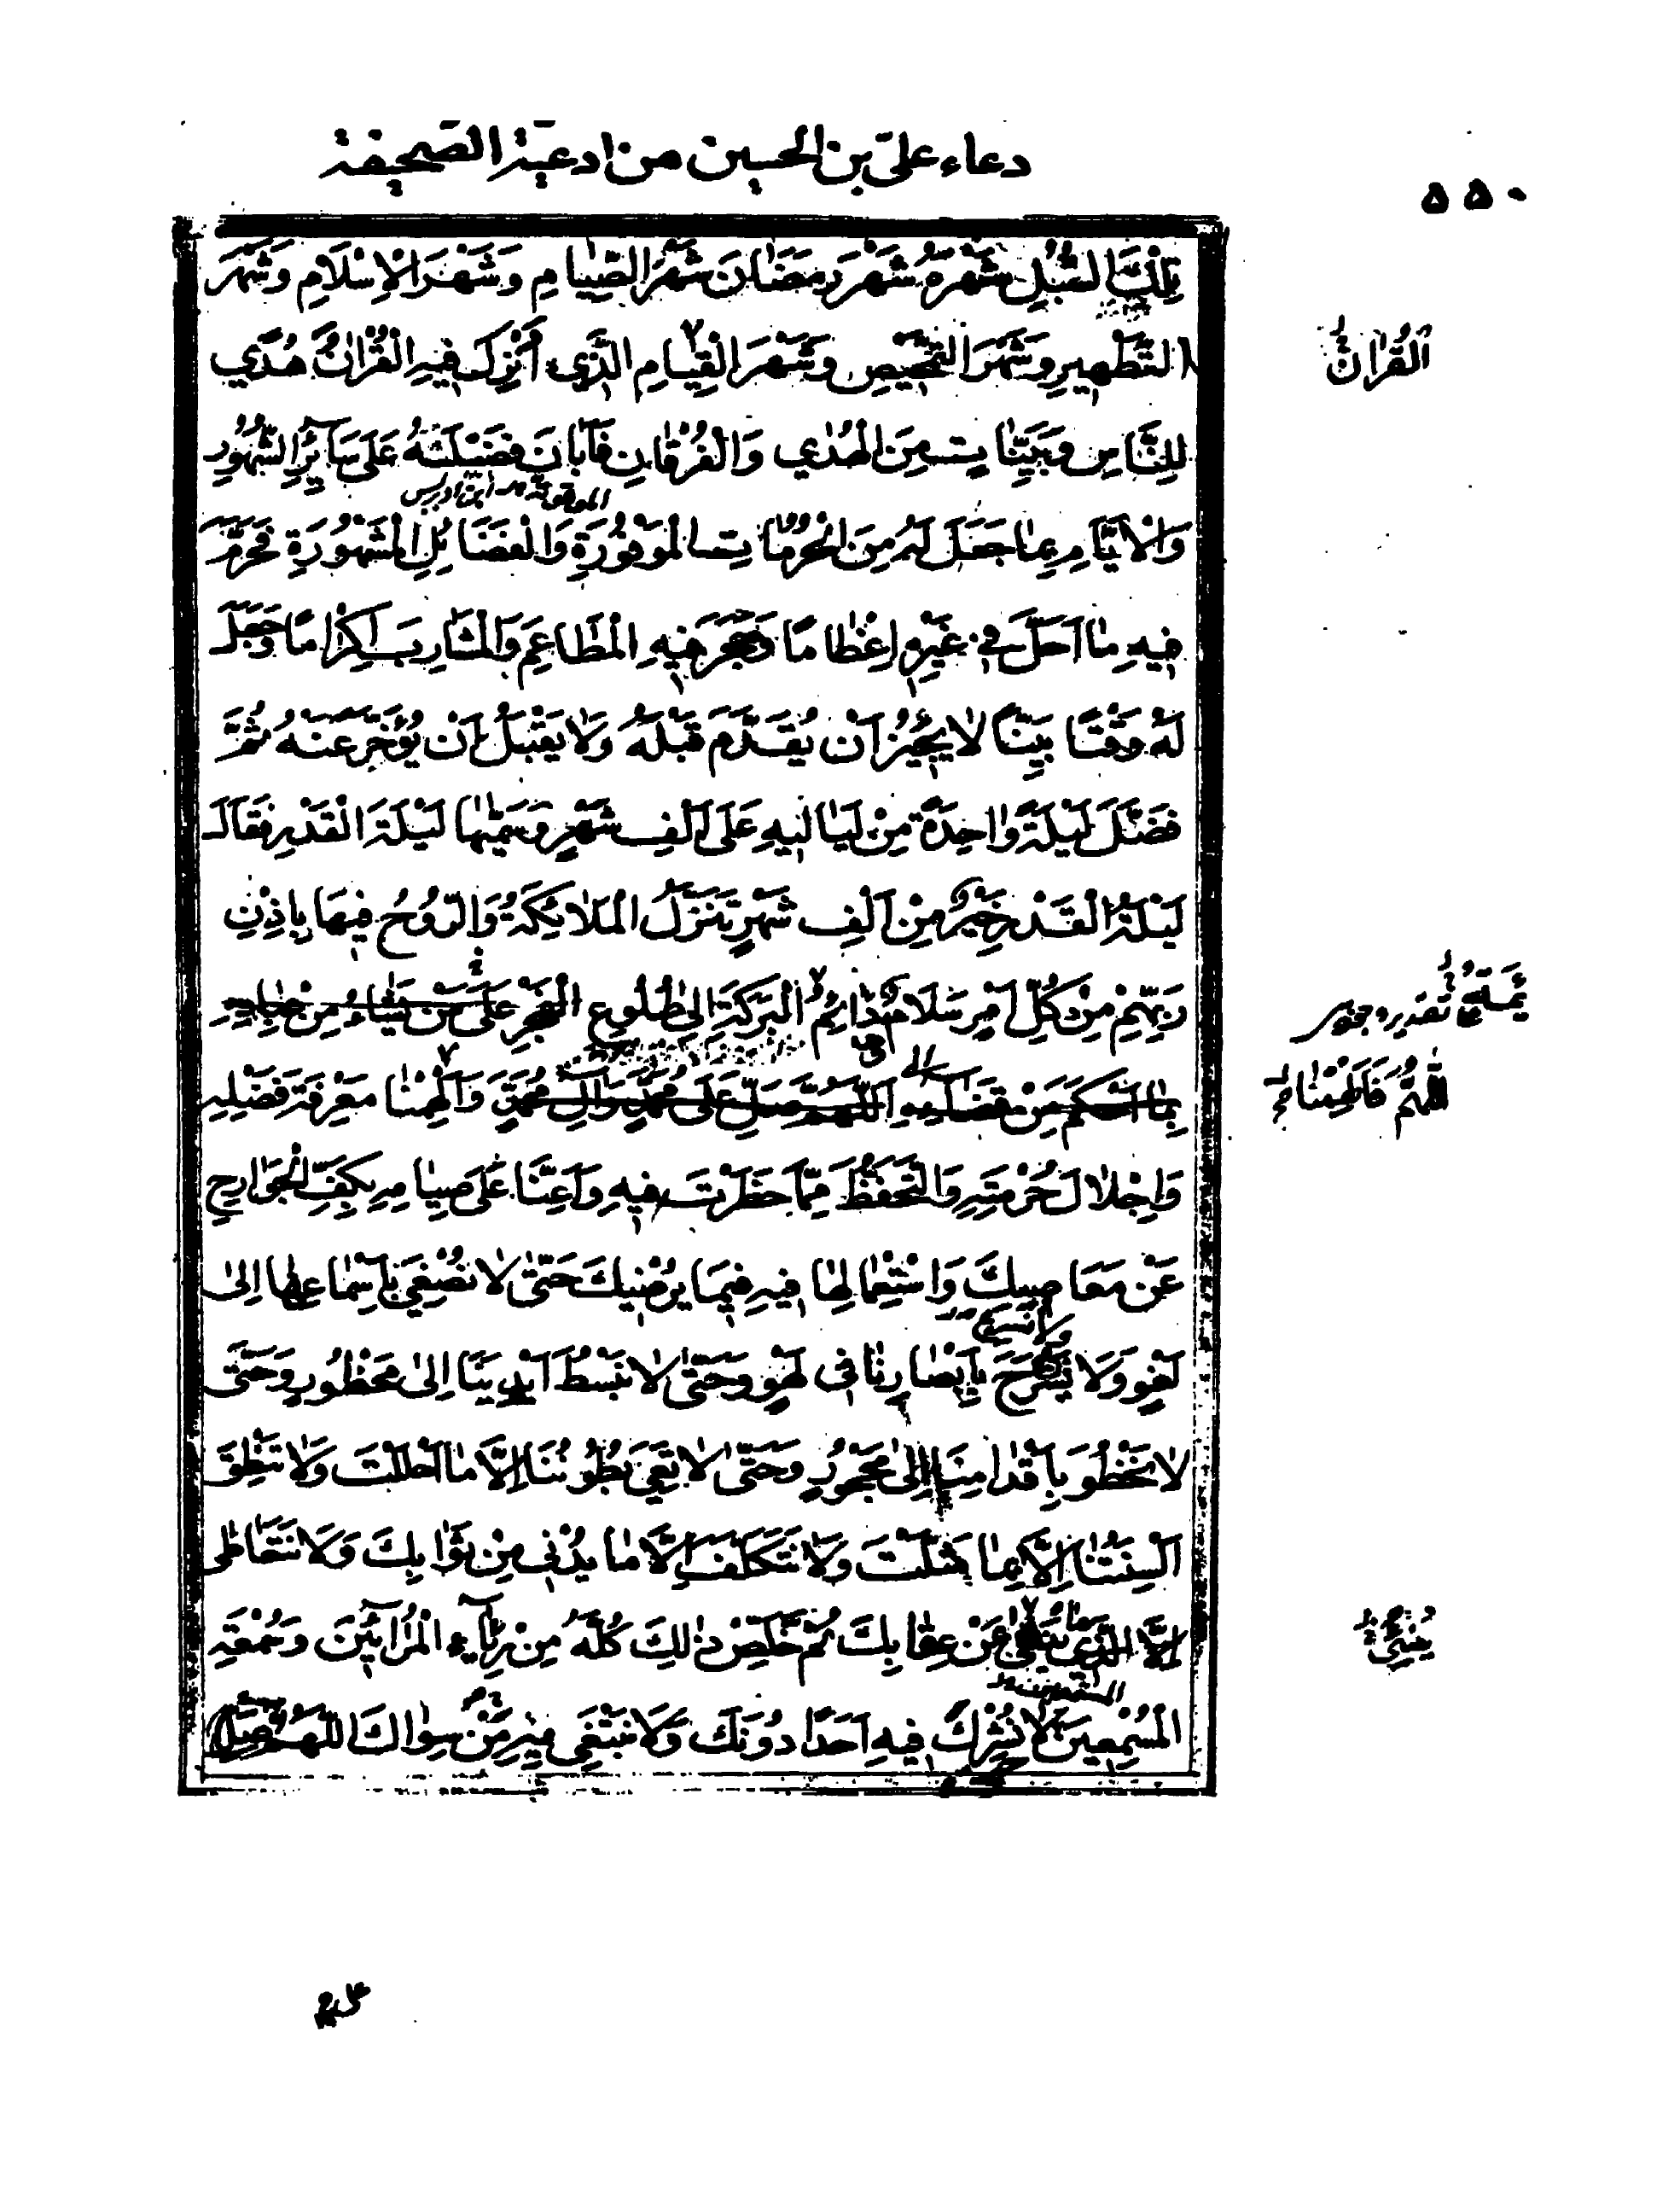 دعاء علیّ بن الحسین من ادعیة الصّحیفة
٥٥٠
تِلْكَ السُّبُلِ شَهْرَهُ شَهْرَ رَمَضٰانَ شَهْرَ الصِّیٰامِ وَشَهْرَ الْاِسْلَامِ وَشَهْرَ
التَّطْهِیرِ وَشَهْرَ التَّمْحِیصِ وَشَهْرَ الْقِیٰامِ الَّذِي اُنْزِلَ فِیهِ الْقُرْاٰنُ هُدًي
اَلْقُرْاٰنَ
لِلنَّاسِ وَبَیِّنٰاتٍ مِنَ الْهُدٰي وَالْفُرْقٰانِ فَاَبٰانَ فَضِیْلَتَهُ عَلَى سَآئِرِ الشُّهُورِ
وَالْاَیّٰامِ بِمٰا جَعَلَ لَهُ مِنَ الْحُرُمٰاتِ الْمَوْفُورَةِ وَالْفَضَائِلِ الْمَشْهُورَةِ فَحَرَّمَ
فِیهِ مٰا اَحَلَّ فِي غَیْرِهِ اِعْظٰامًا وَحَجَرَ فِیهِ الْمَطَاعِمَ وَالْمَشَارِبَ اِكْرٰامًا وَجَعَلَ
لَهُ وَقْتًا بَیِّنًا لاٰ یُجِیزُ اَنْ یُقَدَّمَ قَبْلَهُ وَلاٰ یَقْبَلُ اَنْ یُؤَخَّرَ عَنْهُ ثُمَّ
فَضَّلَ لَیْلَةً وٰاحِدَةً مِنْ لَیَالِیهِ عَلَى اَلْفِ شَهْرٍ وَسَمّٰیهٰا لَیْلَةَ الْقَدْرِ فَقَالَ
لَیْلَةُ الْقَدْرِ خَیْرٌ مِنْ اَلْفِ شَهْرٍ تَنَزَّلُ الْمَلاٰئِكَةُ وَالرُّوحُ فِیهَا بِاِذْنِ
رَبِّهِمْ مِنْ كُلِّ اَمْرٍ سَلَامٌ دٰائِمُ الْبَرَكَةِ اِلىٰ طُلُوعِ الْفَجْرِ عَلَى مَنْ یَشٰاءُ مِنْ عِبٰادِهِ
بِمٰا اَحْكَمَ مِنْ قَضَائِهِ اَللّٰهُمَّ صَلِّ عَلَى مُحَمَّدٍ وَاٰلِ مُحَمَّدٍ وَاَلْهِمْنٰا مَعْرِفَةَ فَضْلِهِ
وَاِجْلاٰلَ حُرْمَتِهِ وَالتَّحَفُّظَ مِمّٰا حَظَرْتَ فِیهِ وَاَعِنَّا عَلَى صِیٰامِهِ بِكَفِّ الْجَوَارِحِ
عَنْ مَعَاصِیكَ وَاسْتِعْمٰالِهٰا فِیهِ فِیمَا یُرْضِیكَ حَتّىٰ لاٰ نُصْغِيَ بِاَسْمٰاعِنٰا اِلىٰ
لَغْوٍ وَلَا نَسْرَحَ بِاَبْصٰارِنٰا فِي لَهْوٍ وَحَتّىٰ لاٰ نَبْسُطَ اَیْدِیَنَا اِلىٰ مَحْظُورٍ وَحَتَّى
لاٰ نَخْطُوَ بِاَقْدٰامِنَا اِلىٰ مَحْجُورٍ وَحَتّىٰ لاٰ تَعِيَ بُطُونُنَا اِلَّا مٰا اَحْلَلْتَ وَلاٰ تَنْطِقَ
اَلْسِنَتُنٰا اِلَّا بِمٰا مَثَّلْتَ وَلَا نَتَكَلَّفَ اِلَّا مٰا یُدْنِي مِنْ ثَوٰابِكَ وَلَا نَتَعَاطٰى
اِلَّا الَّذِي یَقِي مِنْ عِقٰابِكَ ثُمَّ خَلِّصْ ذٰلِكَ كُلَّهُ مِنْ رِئَآءِ الْمُرَائِینَ وَسُمْعَةِ
الْمُسْمِعِینَ لاٰ نُشْرِكُ فِیهِ اَحَدًا دُونَكَ وَلَا نَبْتَغِي بِهِ مَنْ سِوٰاكَ اَللّٰهُمَّ صَلِّ